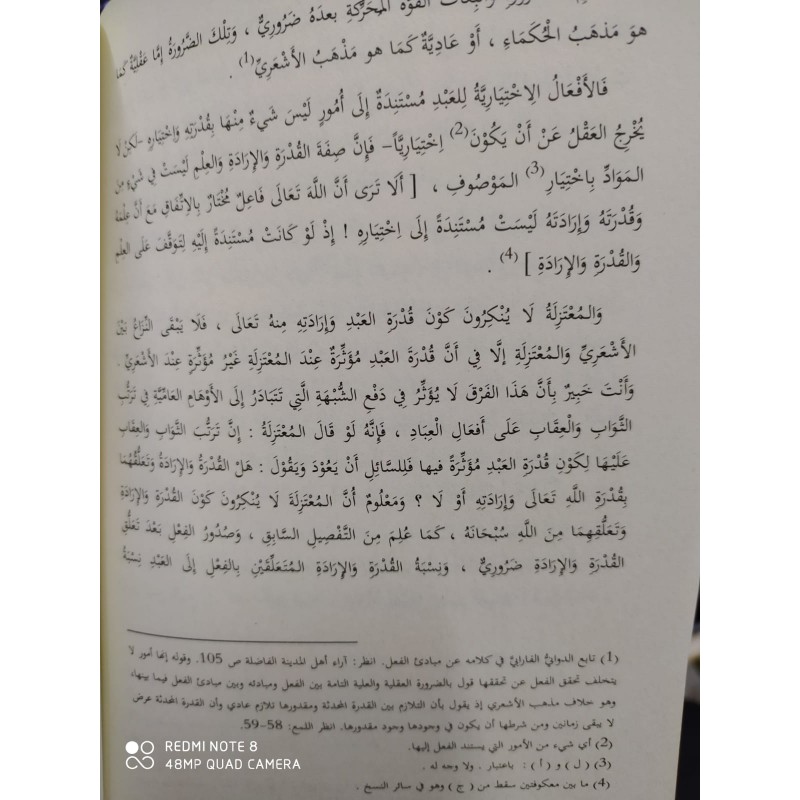 القوة المحركة بعده ضروريٌّ ، وَتِلْكَ الضَّرُورَةُ إِمَّا عَقْلِيَّةٌ كَمَا
هوَ مَذهَبُ الْحُكَمَاءِ ، أَوْ عَادِيَّةٌ كَمَا هو مَذْهَبُ الأَشْعَرِيِّ (1) .
فَالأَفْعَالُ الِاخْتِيَارِيَّةُ لِلعَبْدِ مُسْتَنِدَةٌ إِلَى أُمُورٍ لَيْسَ شَيءٌ مِنْهَا بِقُدْرَتِهِ وَاخْتِيَارِهِ -لَكِنْ لَا
يُخْرِجُ العَقْلُ عَنْ أَنْ يَكُوْنَ (2) اِخْتِيَارِيَّاً- فَإِنَّ صِفَةَ القُدْرَةِ وَالإِرَادَةِ وَالعِلْمِ لَيْسَتْ فِي شَيْءٍ مِنَ
المَوَادِّ بِاخْتِيَارِ (3) المَوْصُوفِ ، [ أَلَا تَرَى أَنَّ اللَّهَ تَعَالَى فَاعِلٌ مُخْتَارٌ بِالِاتِّفَاقِ مَعَ أَنَّ عِلْمَهُ
وَقُدْرَتَهُ وَإِرَادَتَهُ لَيْسَتْ مُسْتَنِدَةً إِلَى اخْتِيَارِهِ ! إِذْ لَوْ كَانَتْ مُسْتَنِدَةً إِلَيْهِ لِتَوَقَّفَ عَلَى العِلْمِ
وَالقُدْرَةِ وَالإِرَادَةِ ] (4) .
وَالمُعْتَزِلَةُ لَا يُنْكِرُونَ كَوْنَ قُدْرَةِ العَبْدِ وَإِرَادَتِهِ مِنهُ تَعَالَى ، فَلَا يَبْقَى النِّزَاعُ بَيْنَ
الأَشْعَرِيِّ وَالمُعْتَزِلَةِ إلَّا فِي أَنَّ قُدْرَةَ العَبْدِ مُؤَثِّرَةٌ عِنْدَ المُعْتَزِلَةِ غَيْرُ مُؤَثِّرَةٍ عِنْدَ الأَشْعَرِيِّ .
وَأَنْتَ خَبِيرٌ بِأَنَّ هَذَا الفَرْقَ لَا يُؤَثِّرُ فِي دَفْعِ الشُّبْهَةِ الَّتِي تَتَبَادَرُ إِلَى الأَوْهَامِ العَامِّيَّةِ فِي تَرَتُّبِ
الثَّوَابِ وَالْعِقَابِ عَلَى أَفعَالِ العِبَادِ ، فَإِنَّهُ لَوْ قَالَ المُعْتَزِلَةُ : إِنَّ تَرَتُّبَ الثَّوَابِ وَالعِقَابِ
عَلَيْهَا لِكَوْنِ قُدرَةِ العَبدِ مُؤَثِّرَةً فيها فَلِلسَّائِلِ أَنْ يَعُوْدَ وَيَقُوْلَ : هَلْ القُدْرَةُ وَالإِرَادَةُ وَتَعَلُّقُهُمَا
بِقُدْرَةِ اللَّهِ تَعَالَى وَإِرَادَتِهِ أَوْ لَا ؟ وَمَعْلُومٌ أَنَّ المُعْتَزِلَةَ لَا يُنْكِرُونَ كَوْنَ القُدْرَةِ وَالإِرَادَةِ
وَتَعَلُّقِهِمَا مِنَ اللَّهِ سُبْحَانَهُ ، كَمَا عُلِمَ مِنَ التَّفْصِيلِ السَّابِقِ ، وَصُدُورُ الفِعْلِ بَعْدَ تَعَلُّقِ
القُدْرَةِ وَالإِرَادَةِ ضَرُورِيٌّ ، وَنِسْبَةُ القُدْرَةِ وَالإِرَادَةِ المُتَعَلِّقَيْنِ بِالفِعْلِ إِلَى العَبْدِ نِسْبَةُ
(1) تابع الدواني الفارابيَّ في كلامه عن مبادئ الفعل. انظر: آراء أهل المدينة الفاضلة ص 105. وقوله إنها أمور لا
يتخلف تحقق الفعل عن تحققها قول بالضرورة العقلية والعلية التامة بين الفعل ومبادئه وبين مبادئ الفعل فيما بينها،
وهو خلاف مذهب الأشعري إذ يقول بأن التلازم بين القدرة المحدثة ومقدورها تلازم عادي وأن القدرة المحدثة عرض
لا يبقى زمانين ومن شرطها أن يكون في وجودها وجود مقدورها. انظر اللمع: 58-59.
(2) أي شيء من الأمور التي يستند الفعل إليها.
(3) ( ل ) و ( أ ) : باعتبار . ولا وجه له .
(4) ما بين معكوفتين سقط من ( ج ) وهو في سائر النسخ .
REDMI NOTE 8
48MP QUAD CAMERA